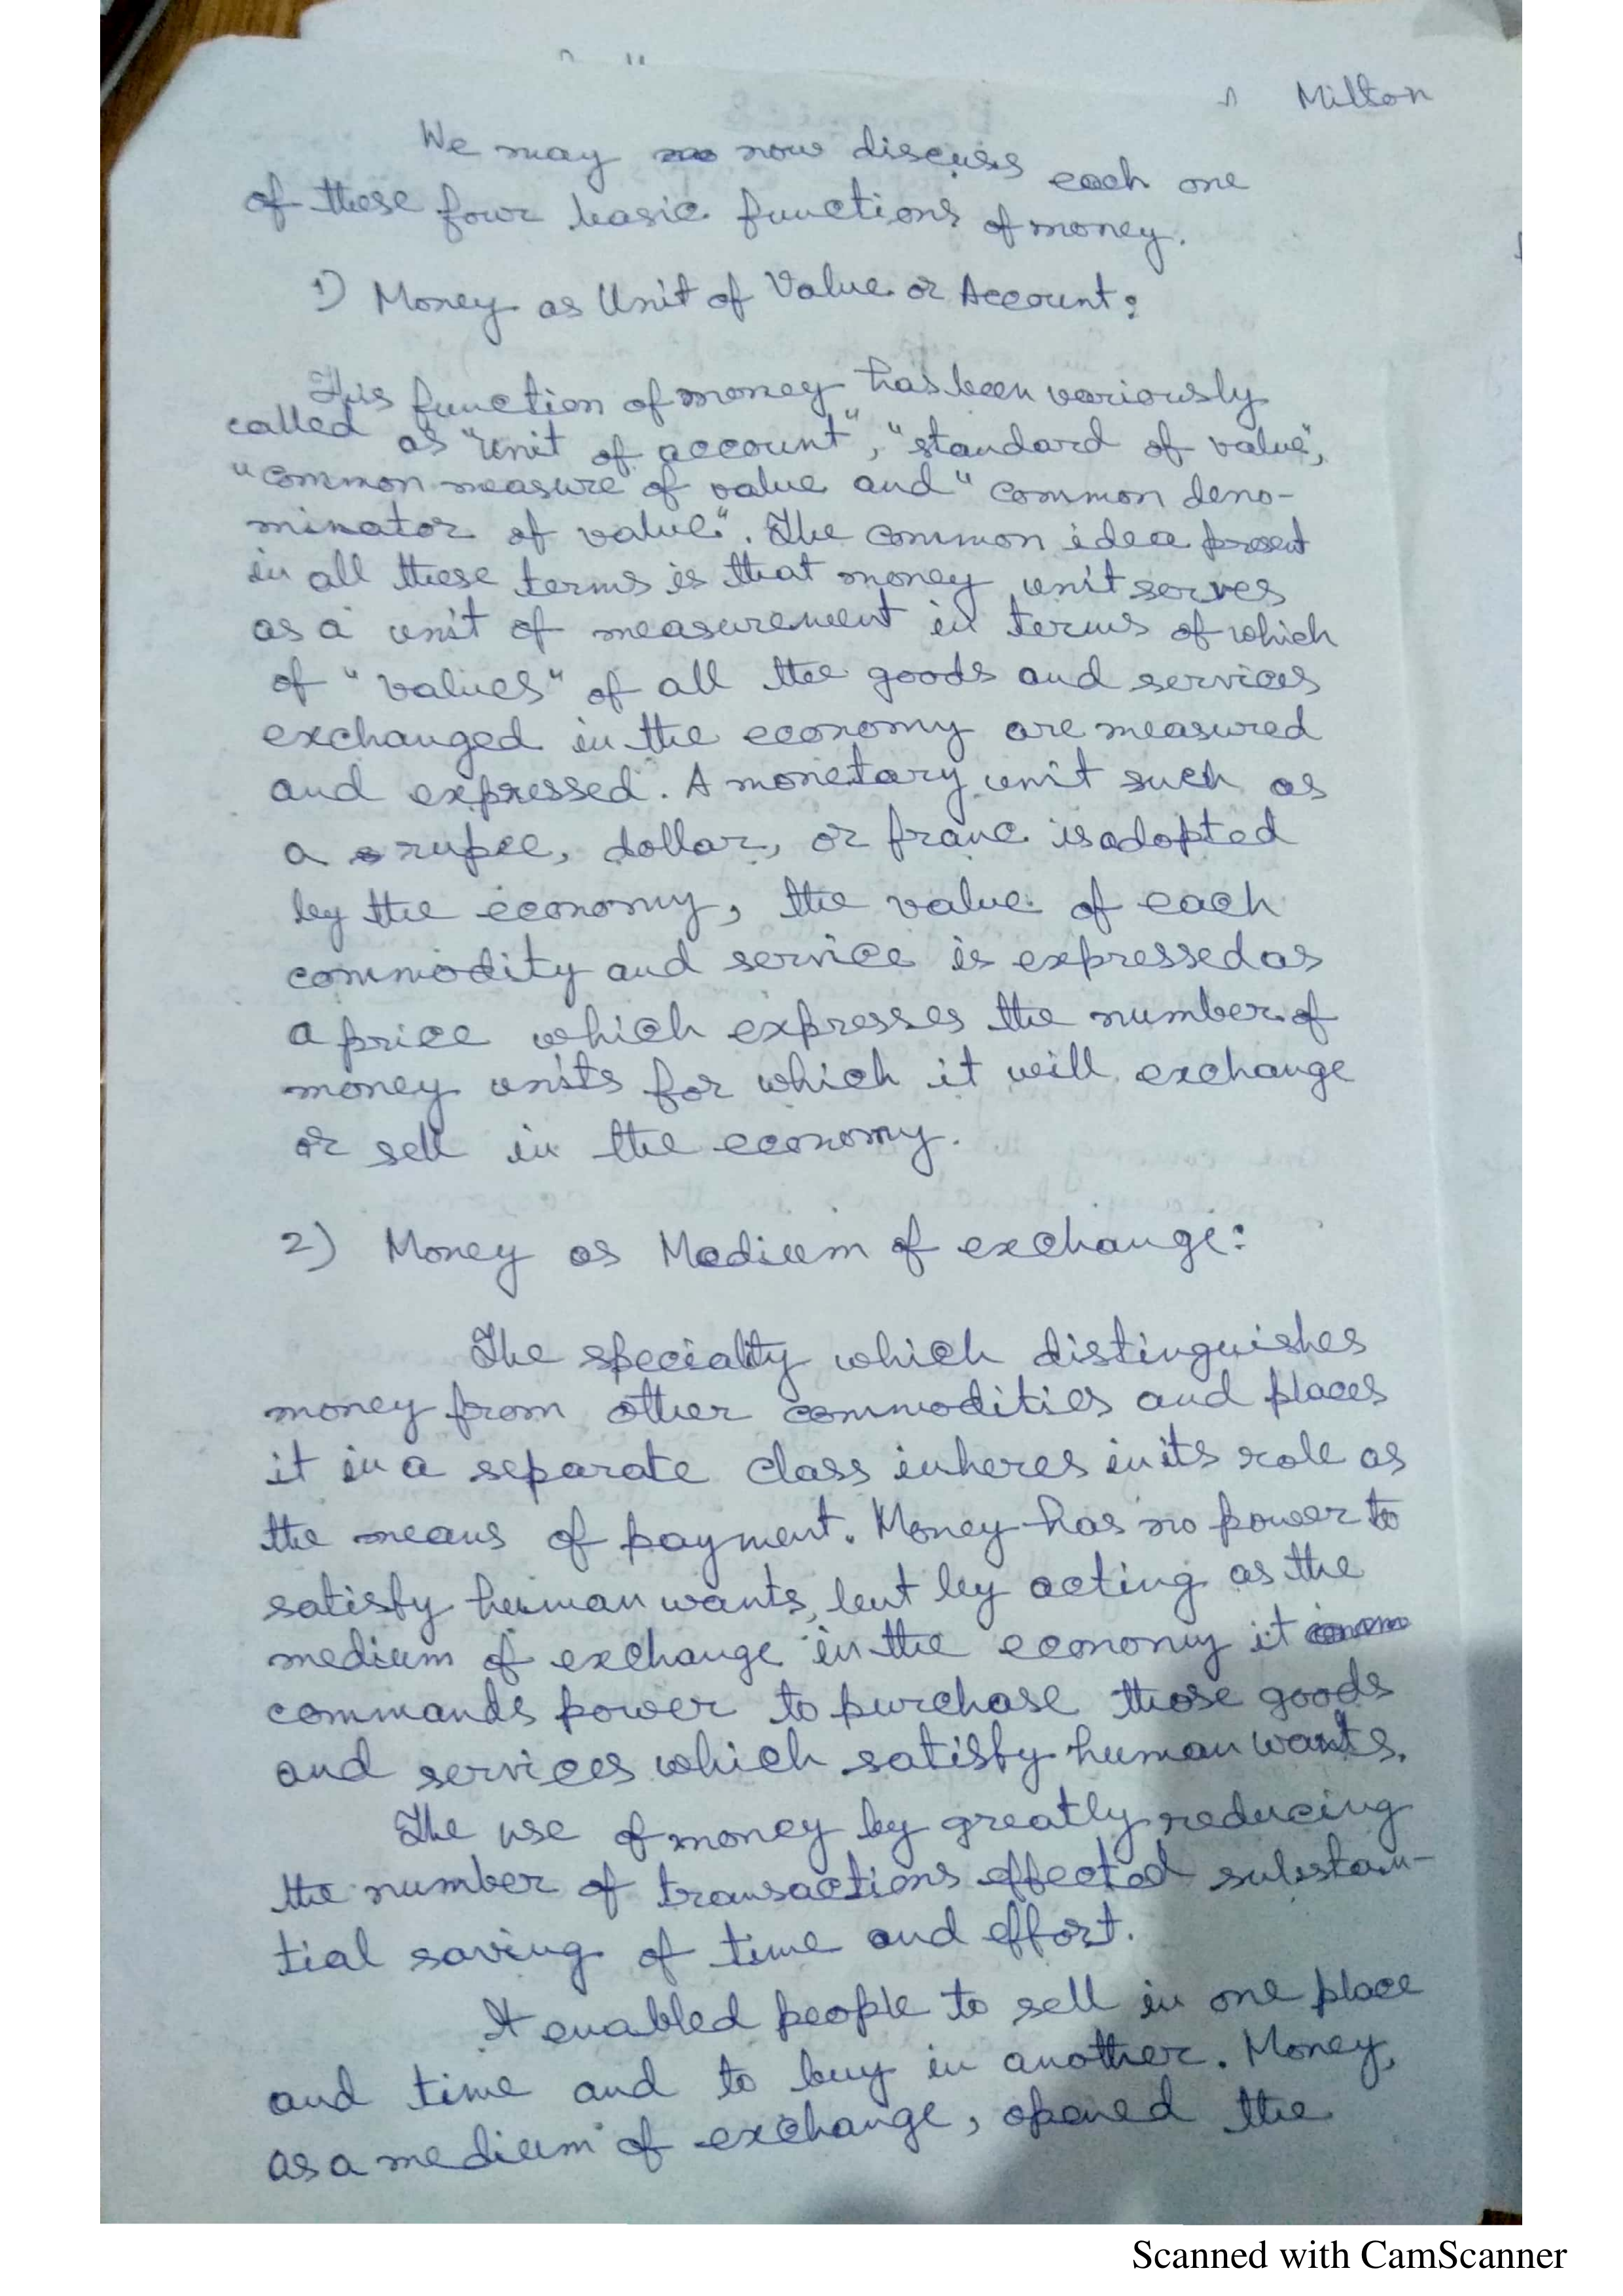 Milton
We may now discuss each one
of these four basic functions of money.
1) Money as Unit of Value or Account:
This function of money has been variously
called as "unit of account", "standard of value",
"common measure of value and "common deno-
minator of value". The common idea present
in all these terms is that money unit serves
as a unit of measurement in terms of which
of "values" of all the goods and services
exchanged in the economy are measured
and expressed. A monetary unit such as
a rupee, dollar, or franc is adopted
by the economy, the value of each
commodity and service is expressed as
a price which expresses the number of
money units for which it will exchange
or sell in the economy.
2) Money as Medium of exchange:
The speciality which distinguishes
money from other commodities and places
it in a separate class inheres in its role as
the means of payment. Money has no power to
satisfy human wants, but by acting as the
medium of exchange in the economy it
commands power to purchase those goods
and services which satisfy human wants.
The use of money by greatly reducing
the number of transactions effected substan-
tial saving of time and effort.
It enabled people to sell in one place
and time and to buy in another. Money,
as a medium of exchange, opened the
Scanned with CamScanner